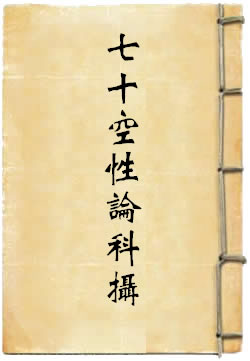 七十空性論科攝